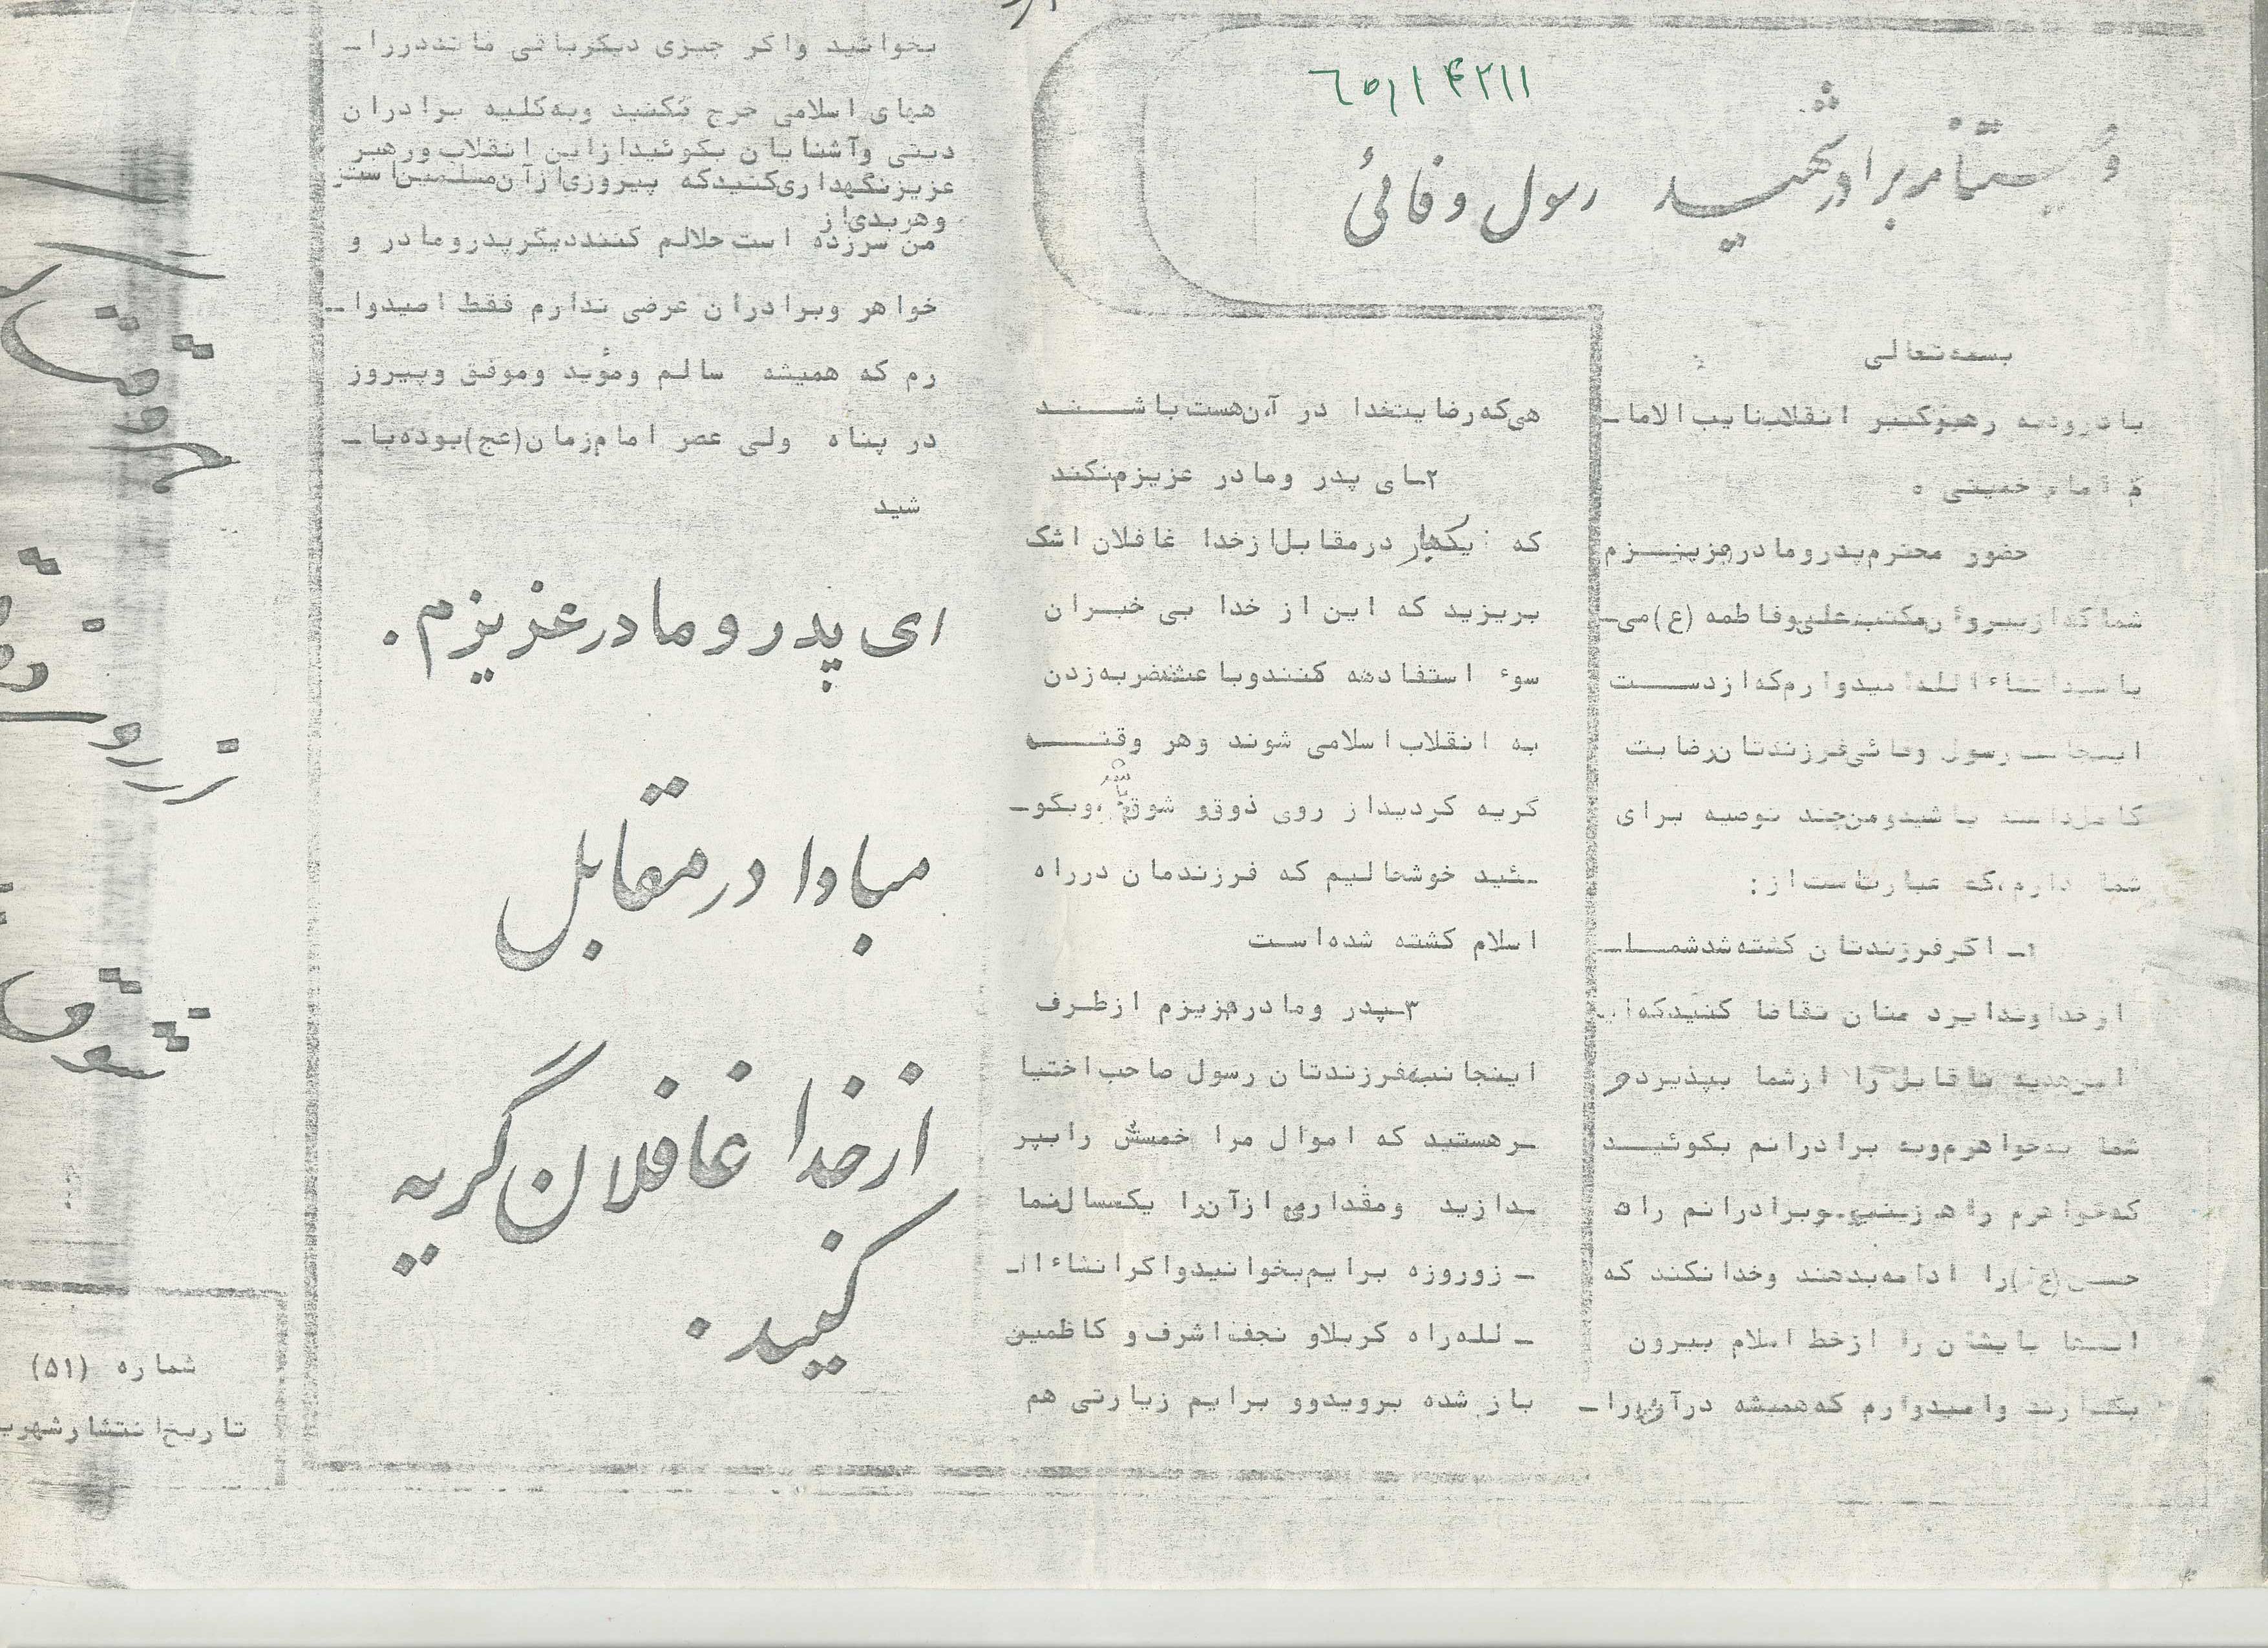 ۶۵۱۱۴۲۱۱
وصیتنامه برادر شهید رسول وفائی
بسمه تعالی
با درود به رهبر کبیر انقلاب نایب الاما ـ
م امام خمینی ه
حضور محترم پدر و مادر عزیزم
شما که از پیروان مکتب علی و فاطمه (ع) می ـ
باشید انشاء الله امیدوارم که از دست
اینجانب رسول وفائی فرزندتان رضایت
کامل داشته باشید و من چند توصیه برای
شما دارم ، که عبارتست از :
۱ـ اگر فرزندتان کشته شد شما ـ
از خداوند ایزد منان تقاضا کنید که این
این هدیه ناقابل را از شما بپذیرد و
شما به خواهرم و به برادرانم بگوئید
که خواهرم راه زینب و برادرانم راه
حسین (ع) را ادامه بدهند و خدا نکند که
پایشان را از خط اسلام بیرون
بگذارند و امیدوارم که همیشه در آن را ـ
هی که رضایت خدا در آن هست باشند
۲ـ ای پدر و مادر عزیزم نکند
که یکبار در مقابل از خدا غافلان اشک
بریزید که این از خدا بی خبران
سوء استفاده کنند و باعث ضربه زدن
به انقلاب اسلامی شوند و هر وقت
گریه کردید از روی ذوق و شوق باشد ، و بگو ـ
ـئید خوشحالیم که فرزندمان در راه
اسلام کشته شده است
۳ـ پدر و مادر عزیزم از طرف
اینجانب فرزندتان رسول صاحب اختیا
ـر هستید که اموال مرا خمسش را بپر
ـدازید و مقداری از آن را یکسال نما
ـ ز و روزه برایم بخوانید و اگر انشاء ا ـ
ـ لله راه کربلا و نجف اشرف و کاظمین
باز شده بروید و و برایم زیارتی هم
بخوانید و اگر چیزی دیگر باقی ماند در را ـ
ههای اسلامی خرج نکنید و به کلیه برادران
دینی و آشنایان بگوئید از این انقلاب و رهبر
عزیز نگهداری کنید که پیروزی از آن مسلمین است
و هر بدی از
من سرزده است حلالم کنند دیگر پدر و مادر و
خواهر و برادران عرضی ندارم فقط امیدوا ـ
رم که همیشه سالم و مؤید و موفق و پیروز
در پناه ولی عصر امام زمان (عج) بوده با ـ
شید
ای پدر و مادر عزیزم .
مبادا در مقابل
از خدا غافلان گریه
کنید .
شماره (۵۱)
تاریخ انتشار شهری